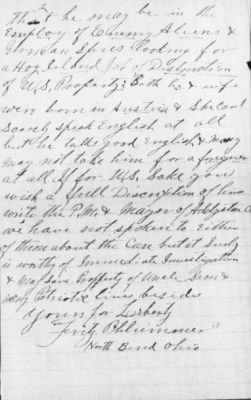 that he may be in the
Employ of Enemy Aliens &
German Spies looking for
a Hog Island Job of Distruction
of U.S. Property; Both he & wife
wen born in Austria & She can
Scarsly Speak English at all
but he talks good English & many
may not take him for a foreigner
at all If for U.S. Sake you
wish a full Discription of him
write the P.M. & Mayor of
we have not spoken to either
of them about the Case but it Surly
is worthy of Immediate Investigation
& may Save Propperty of Uncle Sam &
many Patriotic lives beside
Yours for Liberty
Fritz
North Bend Ohio